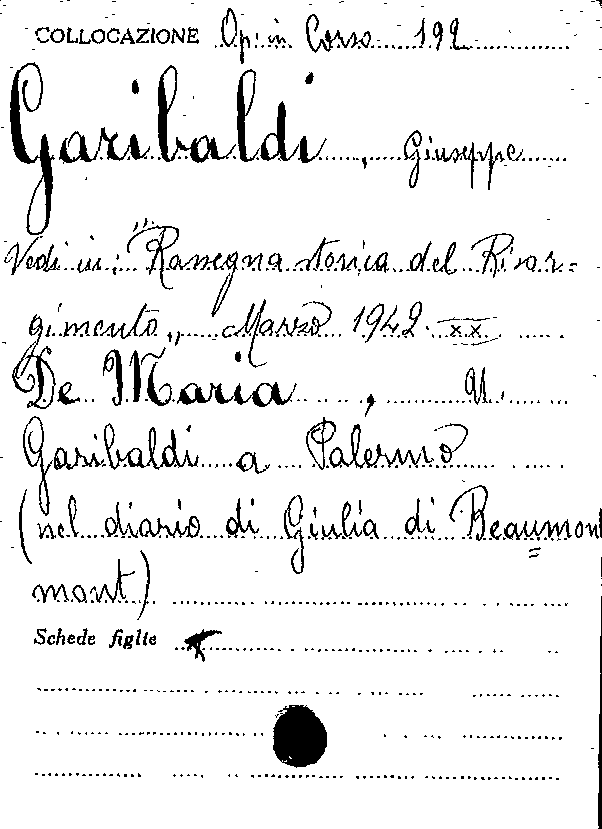 COLLOCAZIONE Op. in Corso 192
Garibaldi, Giuseppe
Vedi in: "Rassegna storica del Risor=
gimento," Marzo 1942 XX.
De Maria, U.
Garibaldi a Palermo
(nel diario di Giulia di Beaumon
mont)
Schede figlie